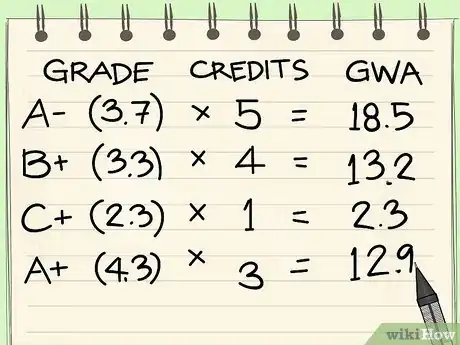 GRADE CREDITS GWA
A- (3.7) × 5 = 18.5
B+ (3.3) × 4 = 13.2
C+ (2.3) × 1 = 2.3
A+ (4.3) × 3 = 12.9
wikiHow